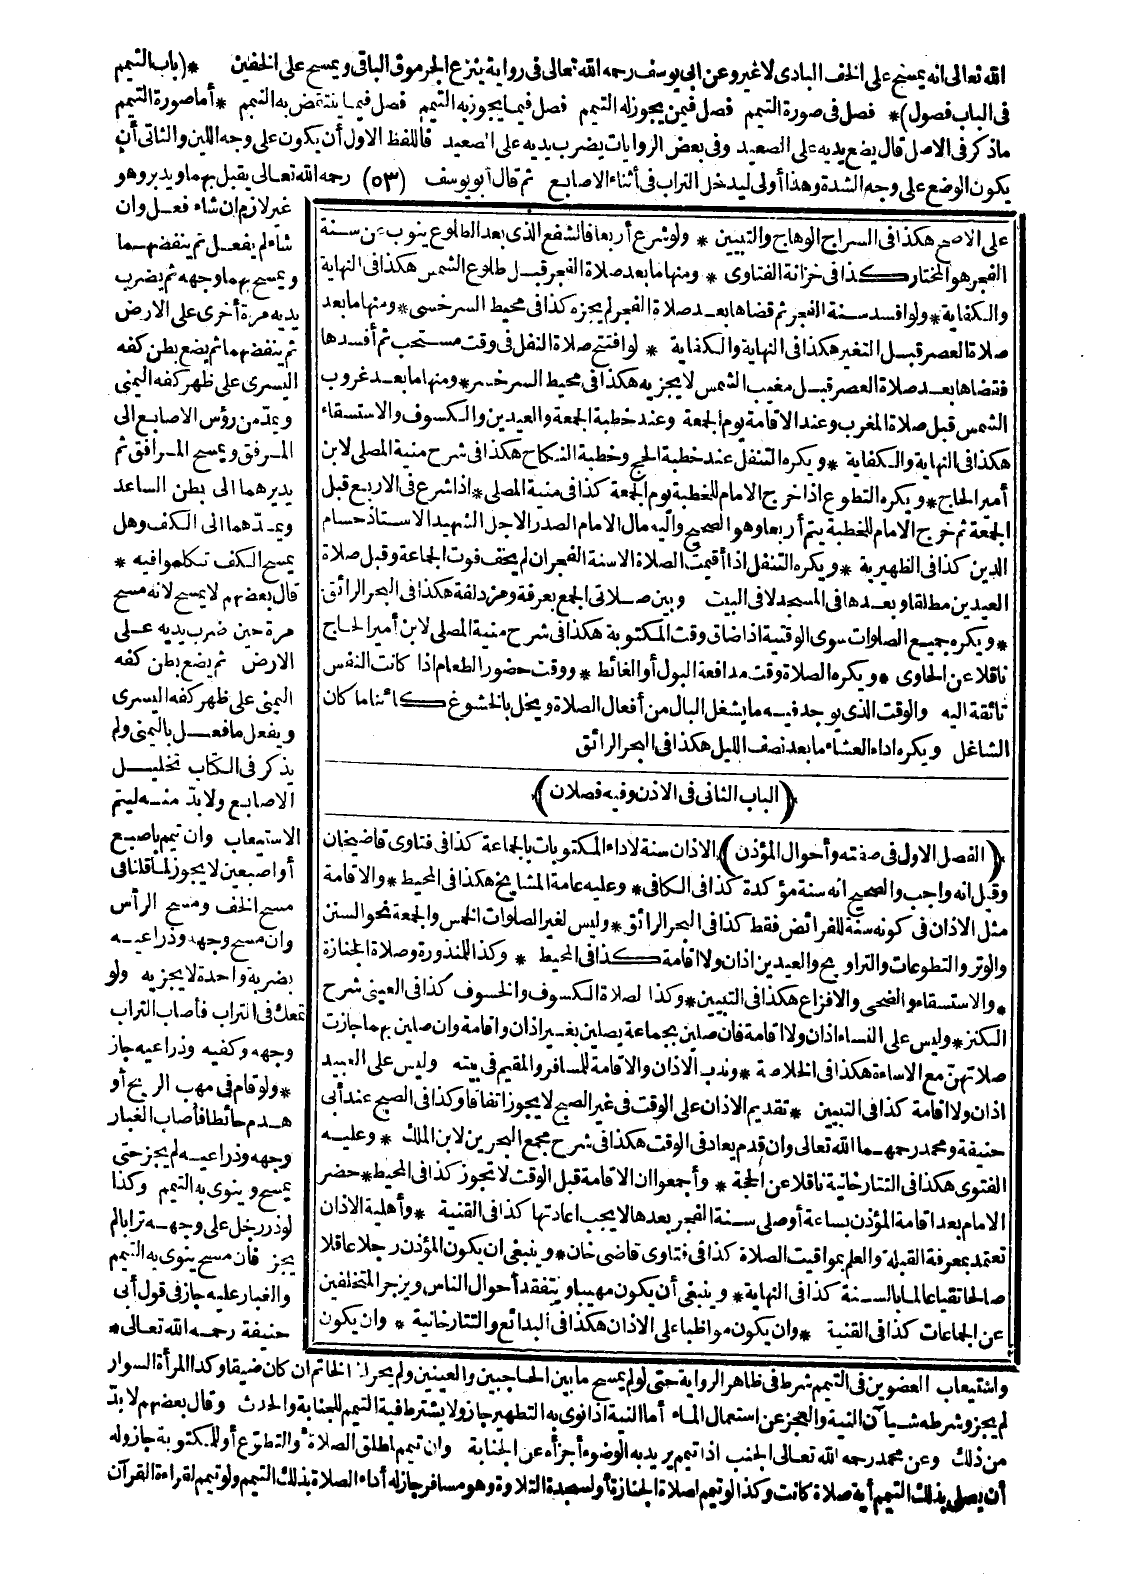 الله تعالى انه يمسح على الخف البادى لا غير وعن ابى يوسف رحمه الله تعالى فى رواية ينزع الجرموق الباقى ويمسح على الخفين * (باب التيمم
فى الباب فصول) * فصل فى صورة التيمم فصل فيمن يجوز له التيمم فصل فيما يجوز به التيمم فصل فيما ينتقض به التيمم * أما صورة التيمم
ماذكر فى الاصل قال يضع يديه على الصعيد وفى بعض الروايات يضرب يديه على الصعيد فاللفظ الاول أن يكون على وجه اللين والثانى أن
يكون الوضع على وجه الشدة وهذا أولى ليدخل التراب فى أثناء الاصابع ثم قال أبو يوسف (٥٣) رحمه الله تعالى يقبل بهما ويدبر وهو
على الاصح هكذا فى السراج الوهاج والتبيين * ولو شرع أربعا فالشفع الذى بعد الطلوع ينوب عن سنة
الفجر هو المختار كذا فى خزانة الفتاوى * ومنها ما بعد صلاة الفجر قبل طلوع الشمس هكذا فى النهاية
والكفاية * ولو افسد سنة الفجر ثم قضاها بعد صلاة الفجر لم يجزه كذا فى محيط السرخسى * ومنها ما بعد
صلاة العصر قبل التغير هكذا فى النهاية والكفاية * لو افتتح صلاة النفل فى وقت مستحب ثم أفسدها
فقضاها بعد صلاة العصر قبل مغيب الشمس لا يجزيه هكذا فى محيط السرخسى * ومنها ما بعد غروب
الشمس قبل صلاة المغرب وعند الاقامة يوم الجمعة وعند خطبة الجمعة والعيدين والكسوف والاستسقاء
هكذا فى النهاية والكفاية * ويكره التنفل عند خطبة الحج وخطبة النكاح هكذا فى شرح منية المصلى لابن
أمير الحاج * ويكره التطوع اذا خرج الامام للخطبة يوم الجمعة كذا فى منية المصلى * اذا شرع فى الاربع قبل
الجمعة ثم خرج الامام للخطبة يتم أربعا وهو الصحيح واليه مال الامام الصدر الاجل الشهيد الاستاذ حسام
الدين كذا فى الظهيرية * ويكره التنفل اذا أقيمت الصلاة الا سنة الفجر ان لم يخف فوت الجماعة وقبل صلاة
العيدين مطلقا وبعدها فى المسجد لا فى البيت وبين صلاتى الجمع بعرفة ومزدلفة هكذا فى البحر الرائق
* ويكره جميع الصلوات سوى الوقتية اذا ضاق وقت المكتوبة هكذا فى شرح منية المصلى لابن أمير الحاج
ناقلا عن الحاوى * ويكره الصلاة وقت مدافعة البول أو الغائط * ووقت حضور الطعام اذا كانت النفس
تائقة اليه والوقت الذى يوجد فيه ما يشغل البال من أفعال الصلاة ويخل بالخشوع كائنا ما كان
الشاغل ويكره اداء العشاء ما بعد نصف الليل هكذا فى البحر الرائق
(الباب الثانى فى الاذن وفيه فصلان)
(الفصل الاول فى صفته وأحوال المؤذن) الاذان سنة لاداء المكتوبات بالجماعة كذا فى فتاوى قاضيخان
وقيل انه واجب والصحيح انه سنة مؤكدة كذا فى الكافى * وعليه عامة المشايخ هكذا فى المحيط * والاقامة
مثل الاذان فى كونه سنة للفرائض فقط كذا فى البحر الرائق * وليس لغير الصلوات الخمس والجمعة نحو السنن
والوتر والتطوعات والتراويح والعيدين اذان ولا اقامة كذا فى المحيط * وكذا للمنذورة وصلاة الجنازة
* والاستسقاء والضحى والافزاع هكذا فى التبيين * وكذا لصلاة الكسوف والخسوف كذا فى العينى شرح
الكنز * وليس على النساء اذان ولا اقامة فان صلين بجماعة يصلين بغير اذان واقامة وان صلين بهما جازت
صلاتهن مع الاساءة هكذا فى الخلاصة * وندب الاذان والاقامة للمسافر والمقيم فى بيته وليس على العبيد
اذان ولا اقامة كذا فى التبيين * تقديم الاذان على الوقت فى غير الصبح لا يجوز اتفاقا وكذا فى الصبح عند أبى
حنيفة ومحمد رحمهما الله تعالى وان قدم يعاد فى الوقت هكذا فى شرح مجمع البحرين لابن الملك * وعليه
الفتوى هكذا فى التتارخانية ناقلا عن الحجة * وأجمعوا ان الاقامة قبل الوقت لا تجوز كذا فى المحيط * حضر
الامام بعد اقامة المؤذن بساعة أو صلى سنة الفجر بعدها لا يجب اعادتها كذا فى القنية * وأهلية الاذان
تعتمد بمعرفة القبلة والعلم بمواقيت الصلاة كذا فى فتاوى قاضى خان * وينبغى ان يكون المؤذن رجلا عاقلا
صالحا تقيا عالما بالسنة كذا فى النهاية * وينبغى أن يكون مهيبا ويتفقد أحوال الناس ويزجر المتخلفين
عن الجماعات كذا فى القنية * وان يكون مواظبا على الاذان هكذا فى البدائع والتتارخانية * وان يكون
غير لازم ان شاء فعل وان
شاء لم يفعل ثم ينفضهما
ويمسح بهما وجهه ثم يضرب
يديه مرة أخرى على الارض
ثم ينفضهما ثم يضع بطن كفه
اليسرى على ظهر كفه اليمنى
ويمد من رؤس الاصابع الى
المرفق ويمسح المرافق ثم
يديرهما الى بطن الساعد
ويمدهما الى الكف وهل
يمسح الكف تكلموا فيه *
قال بعضهم لا يمسح لانه مسح
مرة حين ضرب يديه على
الارض ثم يضع بطن كفه
اليمنى على ظهر كفه اليسرى
ويفعل ما فعل باليمنى ولم
يذكر فى الكتاب تخليل
الاصابع ولا بد منه ليتم
الاستيعاب وان تيمم باصبع
أو اصبعين لا يجوز لما قلنا فى
مسح الخف ومسح الرأس
وان مسح وجهه وذراعيه
بضربة واحدة لا يجزيه ولو
تمعك فى التراب فأصاب التراب
وجهه وكفيه وذراعيه جاز
* ولو قام فى مهب الريح أو
هدم حائطا فأصاب الغبار
وجهه وذراعيه لم يجز حتى
يمسح وينوى به التيمم وكذا
لو ذر رجل على وجهه ترابا لم
يجز فان مسح ينوى به التيمم
والغبار عليه جاز فى قول أبى
حنيفة رحمه الله تعالى *
واستيعاب العضوين فى التيمم شرط فى ظاهر الرواية حتى لو لم يمسح ما بين الحاجبين والعينين ولم يحرك الخاتم ان كان ضيقا وكذا المرأة السوار
لم يجز وشرطه شيآن النية والعجز عن استعمال الماء أما النية اذا نوى به التطهير جاز ولا يشترط فيه التيمم للجنابة والحدث وقال بعضهم لا بد
من ذلك وعن محمد رحمه الله تعالى الجنب اذا تيمم يريد به الوضوء أجزأه عن الجنابة وان تيمم لمطلق الصلاة أو التطوع أو للمكتوبة جاز وله
أن يصلى بذلك التيمم أية صلاة كانت وكذا لو تيمم لصلاة الجنازة أو لسجدة التلاوة وهو مسافر جاز له أداء الصلاة بذلك التيمم ولو تيمم لقراءة القرآن